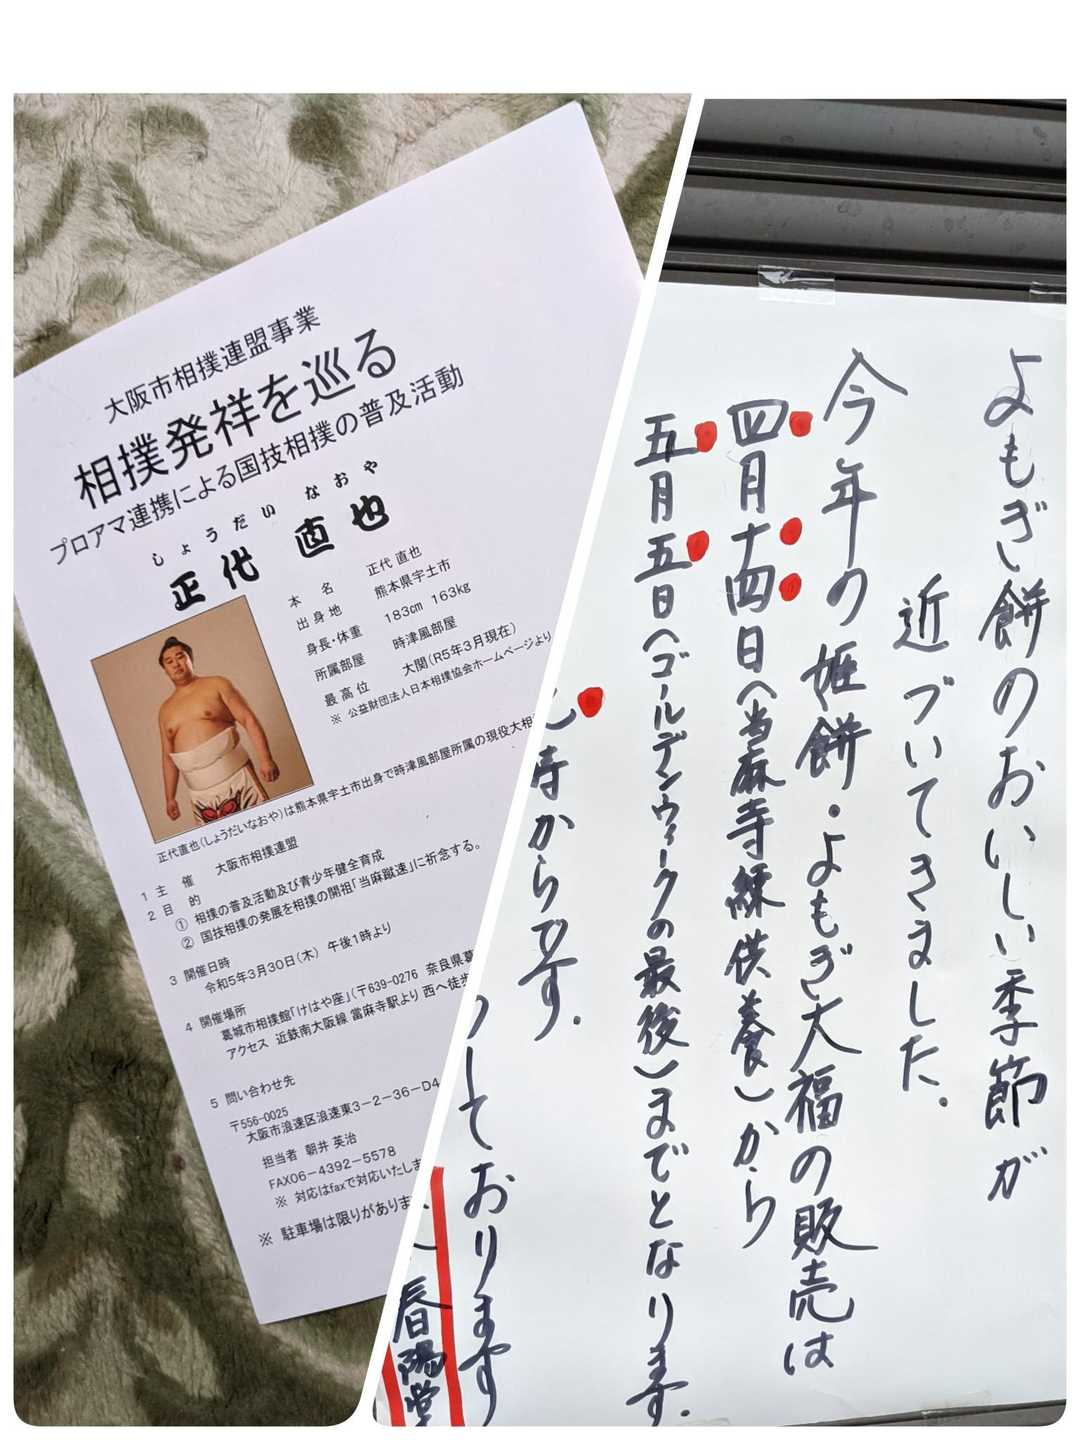 大阪市相撲連盟事業
相撲発祥を巡る
プロアマ連携による国技相撲の普及活動
しょうだい なおや
正代 直也
本名 正代 直也
出身地 熊本県宇土市
身長・体重 183cm 163kg
所属部屋 時津風部屋
最高位 大関(R5年3月現在)
※ 公益財団法人日本相撲協会ホームページより
正代直也(しょうだいなおや)は熊本県宇土市出身で時津風部屋所属の現役大相
1 主 催 大阪市相撲連盟
2 目 的
① 相撲の普及活動及び青少年健全育成
② 国技相撲の発展を相撲の開祖「当麻蹴速」に祈念する。
3 開催日時
令和5年3月30日(木) 午後1時より
4 開催場所
葛城市相撲館「けはや座」(〒639-0276 奈良県葛
アクセス 近鉄南大阪線 當麻寺駅より 西へ徒歩
5 問い合わせ先
〒556-0025
大阪市浪速区浪速東3-2-36-D4
担当者 朝井 英治
FAX06-4392-5578
※ 対応はfaxで対応いたしま
※ 駐車場は限りがありま
よもぎ餅のおいしい季節が
近づいてきました.
今年の姫餅・よもぎ大福の販売は
四月十四日(当麻寺練供養)から
五月五日(ゴールデンウィークの最後)までとなります.
時からです.
しております
春陽堂